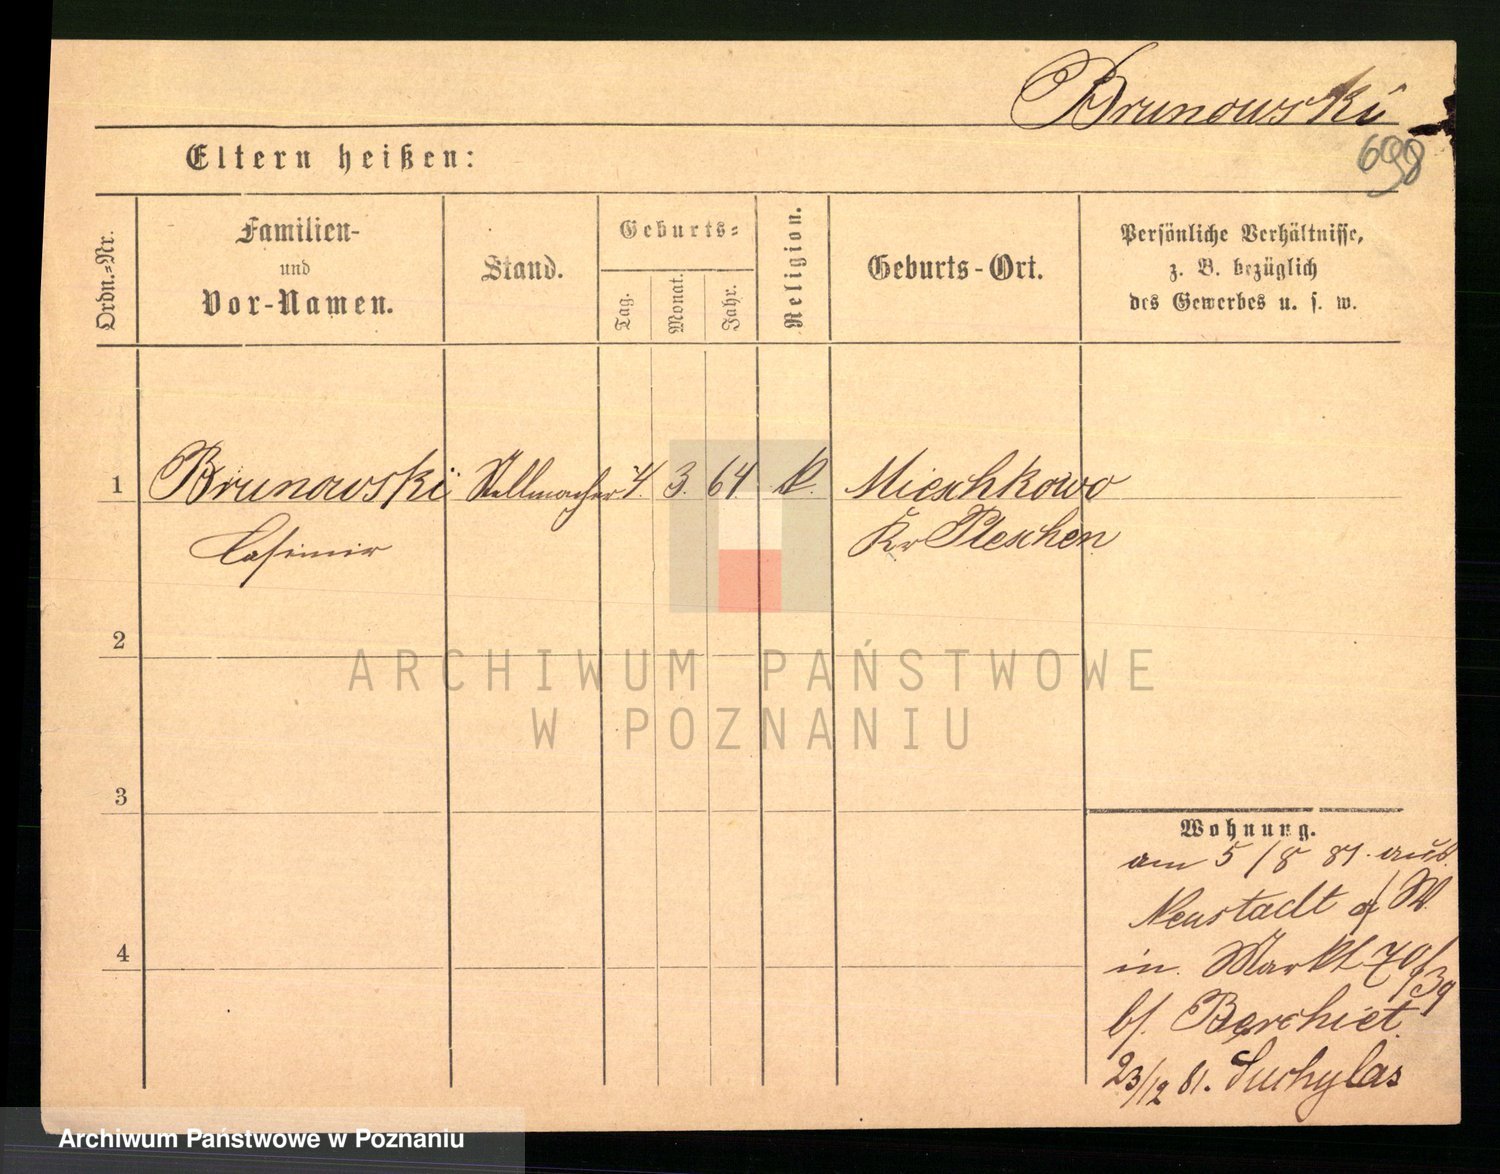 Brunowski
698
Eltern heißen:
Ordn.-Nr.
Familien-
und
Vor-Namen.
Stand.
Geburts-
Tag.
Monat.
Jahr.
Religion.
Geburts-Ort.
Persönliche Verhältnisse,
z. B. bezüglich
des Gewerbes u. s. w.
1 Brunowski Stellmacher 4. 3. 64 k. Mieschkowo
Casimir Kr Pleschen
2
3
4
Wohnung.
am 5/8 81. aus.
Neustadt a/W.
in. Markt 70/39
bf. Berchiet.
23/12 81. Suchylas
ARCHIWUM PAŃSTWOWE
W POZNANIU
Archiwum Państwowe w Poznaniu